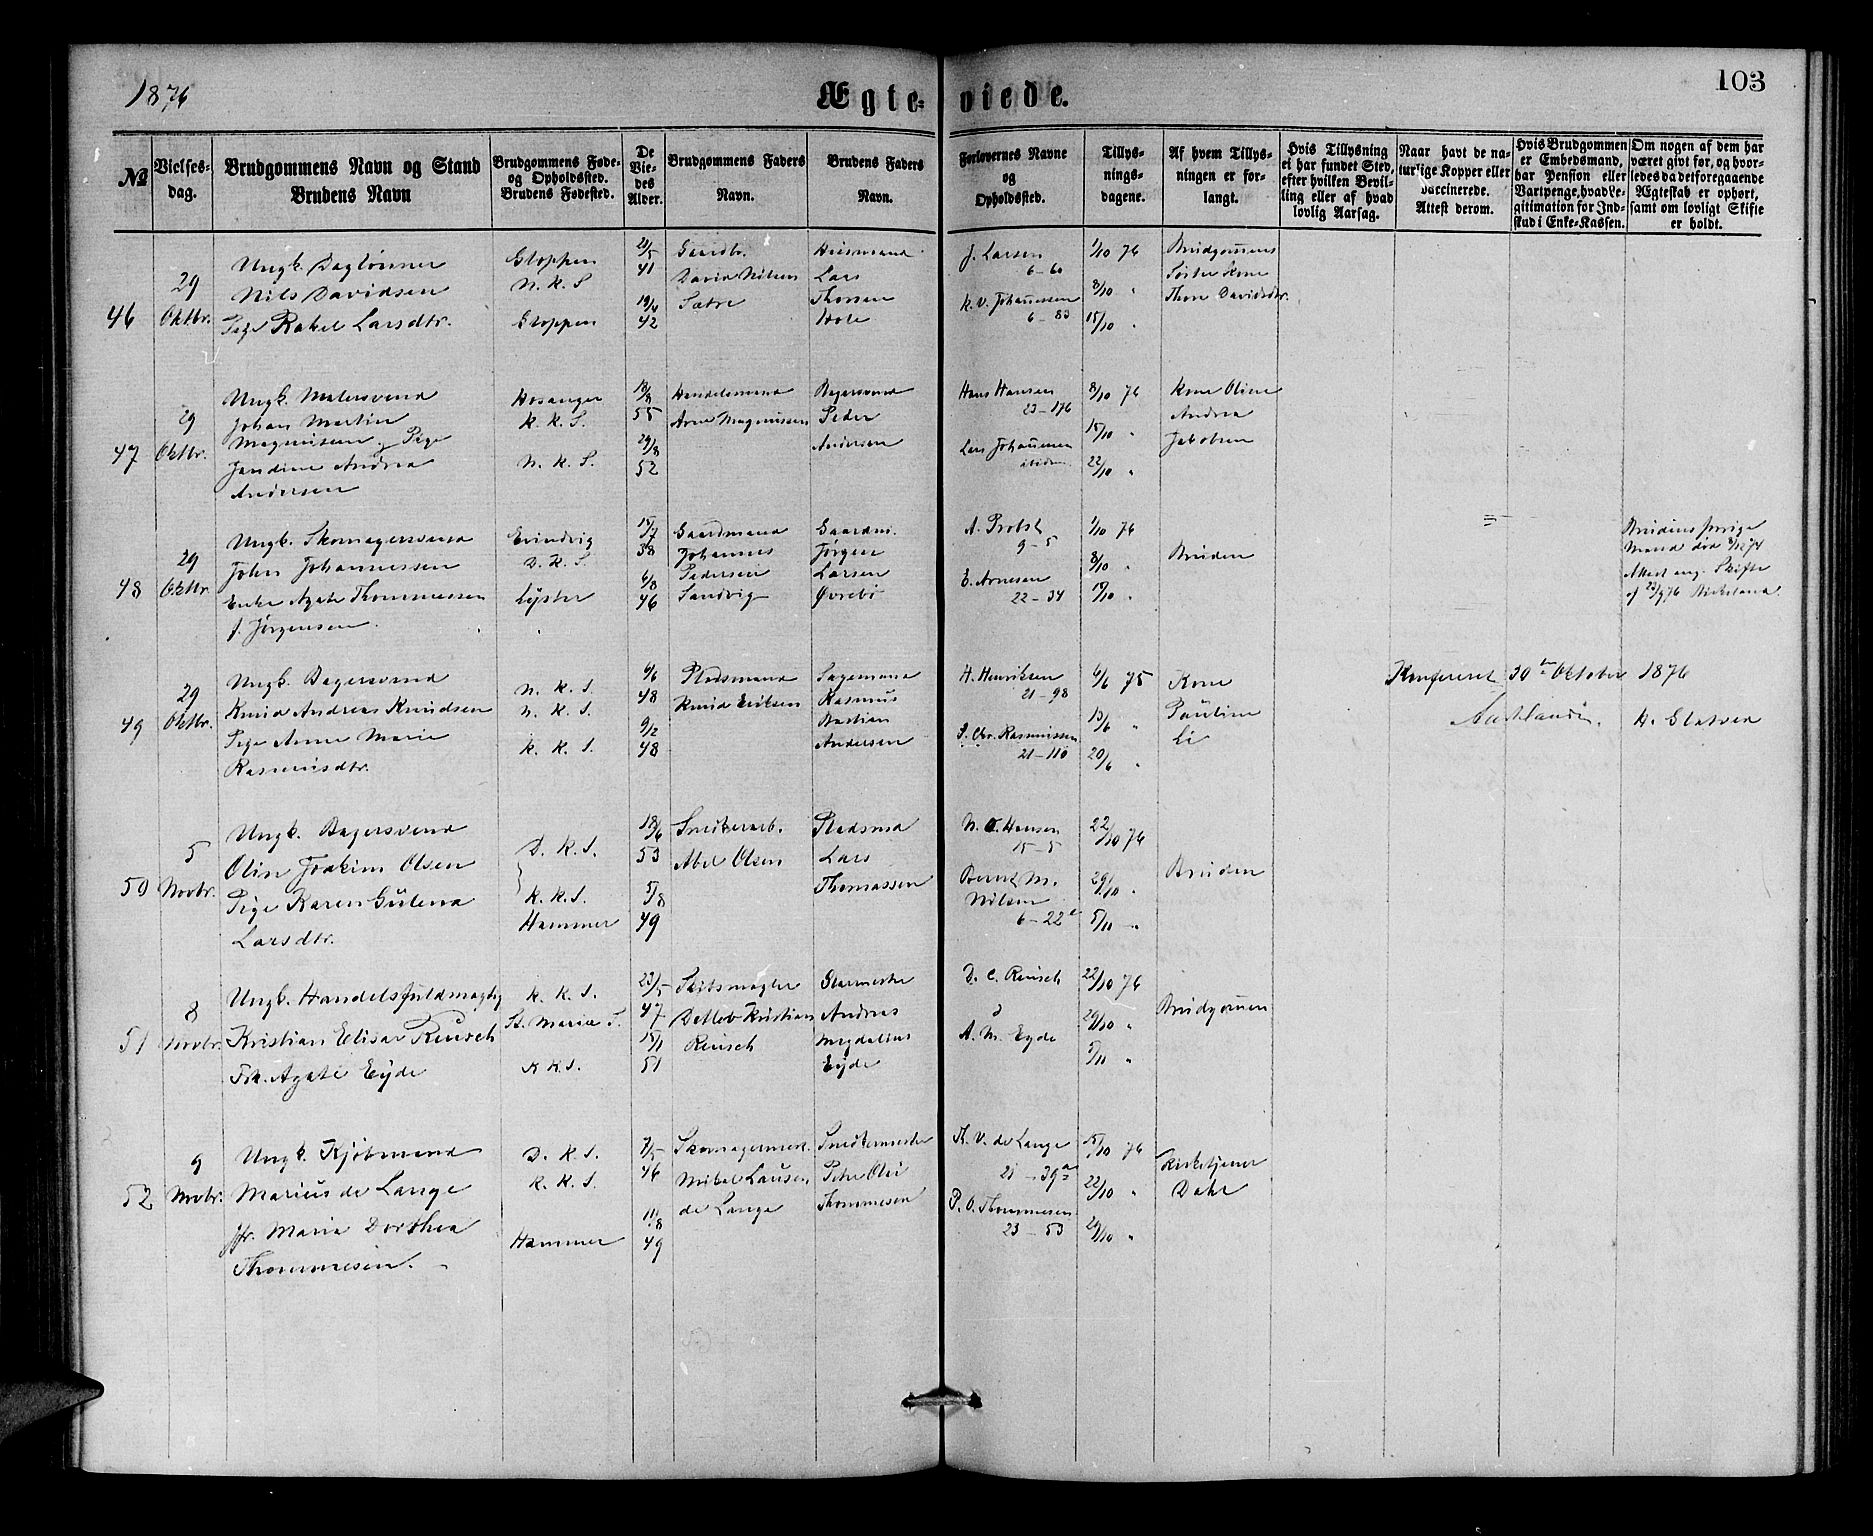 1876
Ægteviede.
103
№
Vielsesdag.
Brudgommens Navn og Stand
Brudens Navn
Brudgommens Føde- og Opholdsted.
Brudens Fødested.
De Viedes Alder.
Brudgommens Faders Navn.
Brudens Faders Navn.
Forlovernes Navne og Opholdsted.
Tillysningsdagene.
Af hvem Tillysningen er forlangt.
Hvis Tillysning ei har fundet Sted, efter hvilken Bevilling eller af hvad lovlig Aarsag.
Naar havt de naturlige Kopper eller vaccinerede. Attest derom.
Hvis Brudgommen er Embedsmand, har Pension eller Vartpenge, hvad Legitimation for Indskud i Enke-Kassen.
Om nogen af dem har været givt før, og hvorledes da det foregaaende Ægteskab er ophørt, samt om lovligt Skifte er holdt.
46
29 Oktbr.
Ungk. Dagtønner
Nils Davidsen
Pige Rakel Larsdtr.
Gloppen
N. K. S
Gloppen
21/5 41
19/4 42
Gaardbr.
David Nilsen
Sætre
Huusmand
Lars
Thorsen
Hole
J. Larsen
6-60
K. V. Johannessen
6-83
1/10 76
8/10 "
15/10 "
Brudgommens
Søster Kone
Thore Davidsdtr.
47
29 Oktbr.
Ungk. Malersvend
Johan Martin
Magnusen, Pige
Jandine Andrea
Andersen
Hosanger
K. K. S.
N. K. S.
18/8 55
29/8 52
Handelsmand
Arne Magnussen
Bagersvend
Peder
Andersen
Hans Hansen
23-176
Lars Johannesen
ibidm
8/10 76
15/10 "
22/10 "
Kone Oline
Andrea
Jakobsen
48
29 Oktbr.
Ungk. Skomagersvend
John Johannessen
Enke Agate Thommessen
f. Jørgensen.
Evindvig
D. K. S
Lyster
15/7 38
6/8 46
Gaardmand
Johannes
Pedersen
Sandvig
Gaardm.
Jørgen
Larsen
Øvrebø
A. Probst
9-5
E. Arnesen
22-34
1/10 76
8/10 "
Bruden
Brudens forrige
Mand død 8/12 74
Attest ang. Skifte
af 23/9 76
49
29 Oktbr.
Ungk. Bagersvend
Knud Andreas Knudsen
Pige Anne Marie
Rasmusdtr.
N. K. S.
N. K. S.
K. K. S.
6/6 48
9/2 48
Pladsmand
Knud Eriksen
Sagemand
Rasmus
Bastian
Andersen
H. Henriksen
21-98
S. Chr. Rasmussen
21-110
6/6 75
13/6 "
20/6 "
Kone
Pauline
Li
Konfereret 30te Oktober 1876
50
5 Novbr.
Ungk. Bagersvend
Olin Joakim Olsen
Pige Karen Gulena
Larsdtr.
D. K. S.
K. K. S.
Hammer
18/6 53
5/8 49
Snedkerarb.
Abel Olsen
Pladsmd
Lars
Thomassen
N. O. Hansen
15-5
Bernt M.
Nilsen
6-22
22/10 76
29/10 "
5/10 "
Bruden
51
8 Novbr.
Ungk. Handelsfuldmægtig
Kristian Elisar Reusch
Frk. Agate Eyde
K. K. S.
St. Mariæ S.
K K S.
23/5 47
15/1 51
Skibsmægler
Detlev Kristian
Reusch
Glarmester
Andreas
Magdalius
Eyde
D. C. Reusch
A. M. Eyde
22/10 76
29/10 "
5/11 "
Brudgommen
52
9 Novbr.
Ungk. Kjøbmand
Marius de Lange
Jfr. Maria Dorthea
Thommesen.
D. K. S.
K. K. S.
Hammer
7/5 46
11/8 49
Skomagermest.
Mikal Lausen
de Lange
Snedkermester
Peter Olai
Thommesen
Th. V. de Lange
21-39a
P. O. Thommesen
23-53
15/10 76
22/10 "
29/10 "
Kirketjener
Dahl